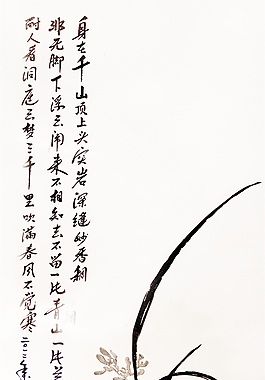 身在千山顶上头突岩深缝妙香稠
非无脚下浮云闹来不相知去不留一片青山一片兰
耐人看洞庭云梦三千里吹满春风不觉寒二〇二二年